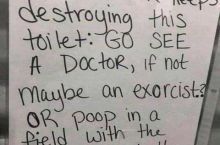 destroying this
toilet: GO SEE
A DOCTOR, if not
maybe an exorcist?
OR poop in a
field with the